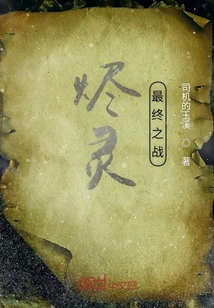 烬灵
最终之战
司机的玉溪 著